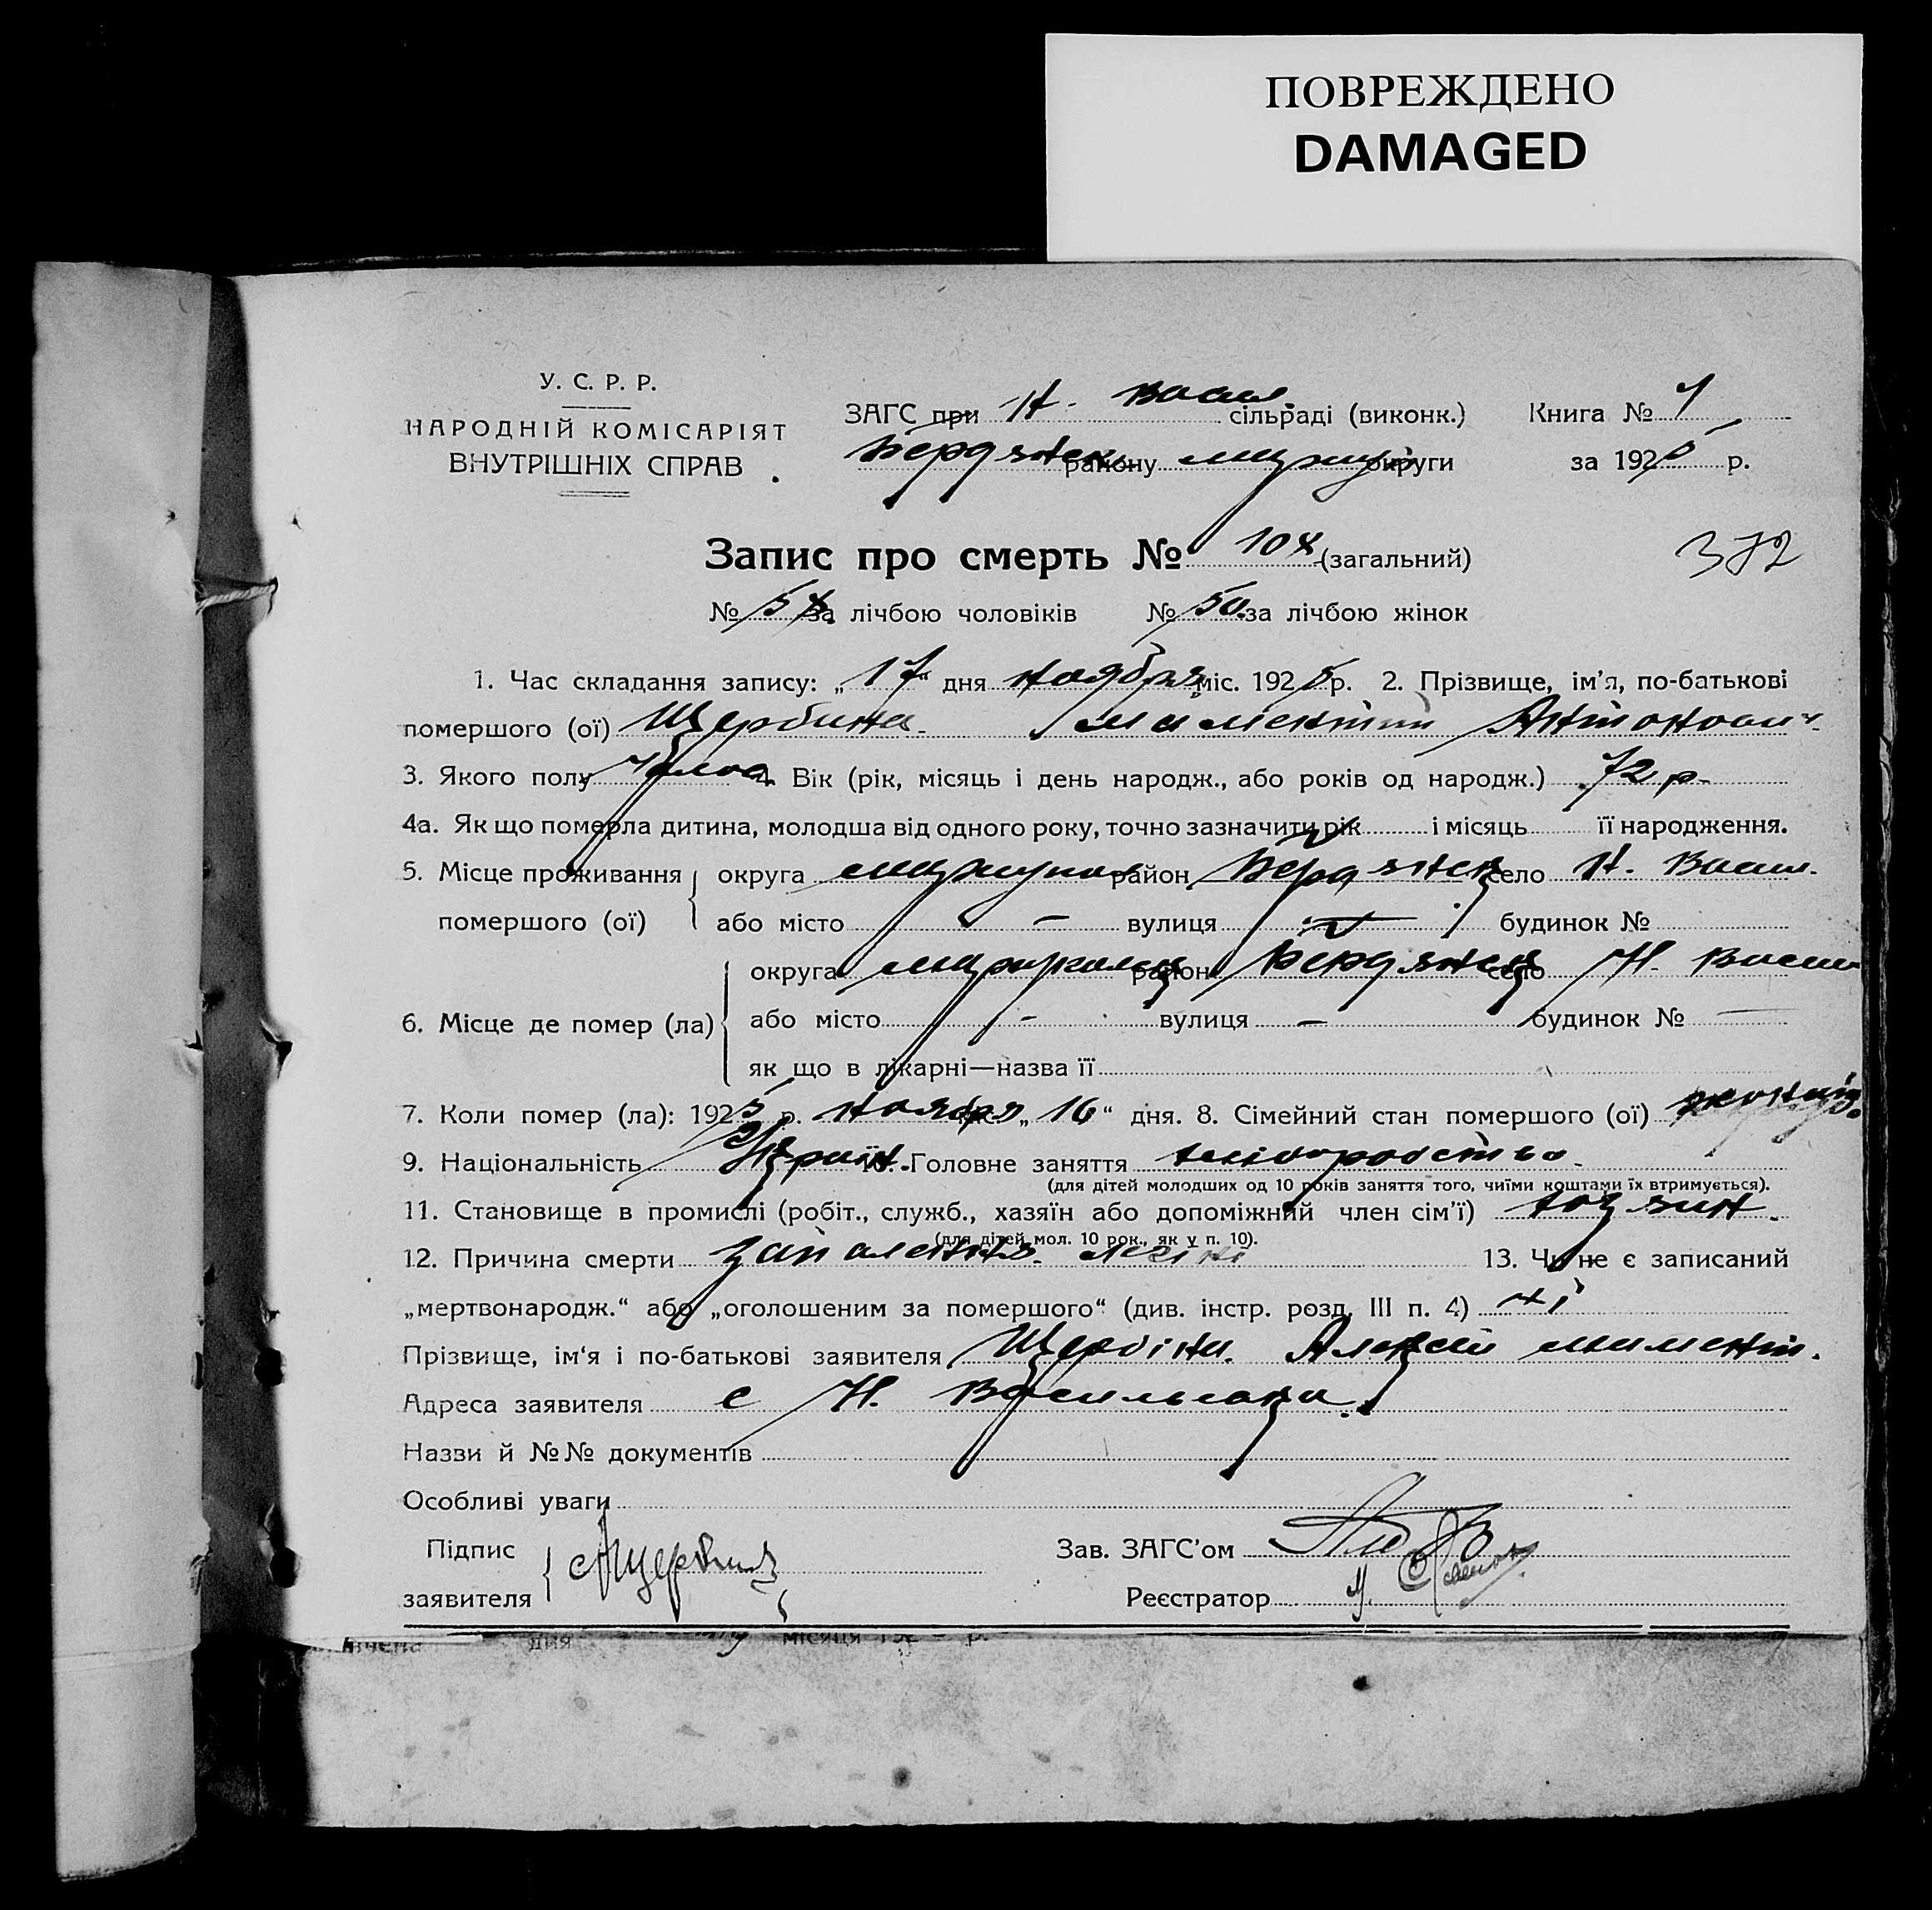 ПОВРЕЖДЕНО
DAMAGED
У. С. Р. Р.
НАРОДНІЙ КОМІСАРІЯТ
ВНУТРІШНІХ СПРАВ
ЗАГС при Н. Васил. сільраді (виконк.) Книга № 1
Бердянск. району округи за 1925 р.
Запис про смерть № 108 (загальний)
382
№ 58 за лічбою чоловіків № 50 за лічбою жінок
1. Час складання запису: „17“ дня ноября міс. 1925 р. 2. Прізвище, ім'я, по-батькові
помершого (ої) Щербина Антонович
3. Якого полу Чолов. 4. Вік (рік, місяць і день народж., або років од народж.) 72 р.
4а. Як що померла дитина, молодша від одного року, точно зазначити рік і місяць її народження.
5. Місце проживання округа район Бердянск село Н. Васил.
помершого (ої) або місто — вулиця — будинок №
округа район Бердянск село Н. Васил
6. Місце де помер (ла) або місто - вулиця — будинок № —
як що в лікарні—назва її
7. Коли помер (ла): 1925 р. ноября „16“ дня. 8. Сімейний стан помершого (ої)
9. Національність Україн. 10. Головне заняття хліборобство
(для дітей молодших од 10 років заняття того, чиїми коштами їх втримується).
11. Становище в промислі (робіт., служб., хазяїн або допоміжний член сім'ї) хозяин
(для дітей мол. 10 рок., як у п. 10).
12. Причина смерти запалення легіні 13. Чи не є записаний
„мертвонародж.“ або „оголошеним за помершого“ (див. інстр. розд. III п. 4) ні
Прізвище, ім'я і по-батькові заявителя Щербина Алексей
Адреса заявителя с Н. Васильевка
Назви й №№ документів
Особливі уваги
Підпис
заявителя Щербина
Зав. ЗАГС'ом
Реєстратор
дня місяця р.